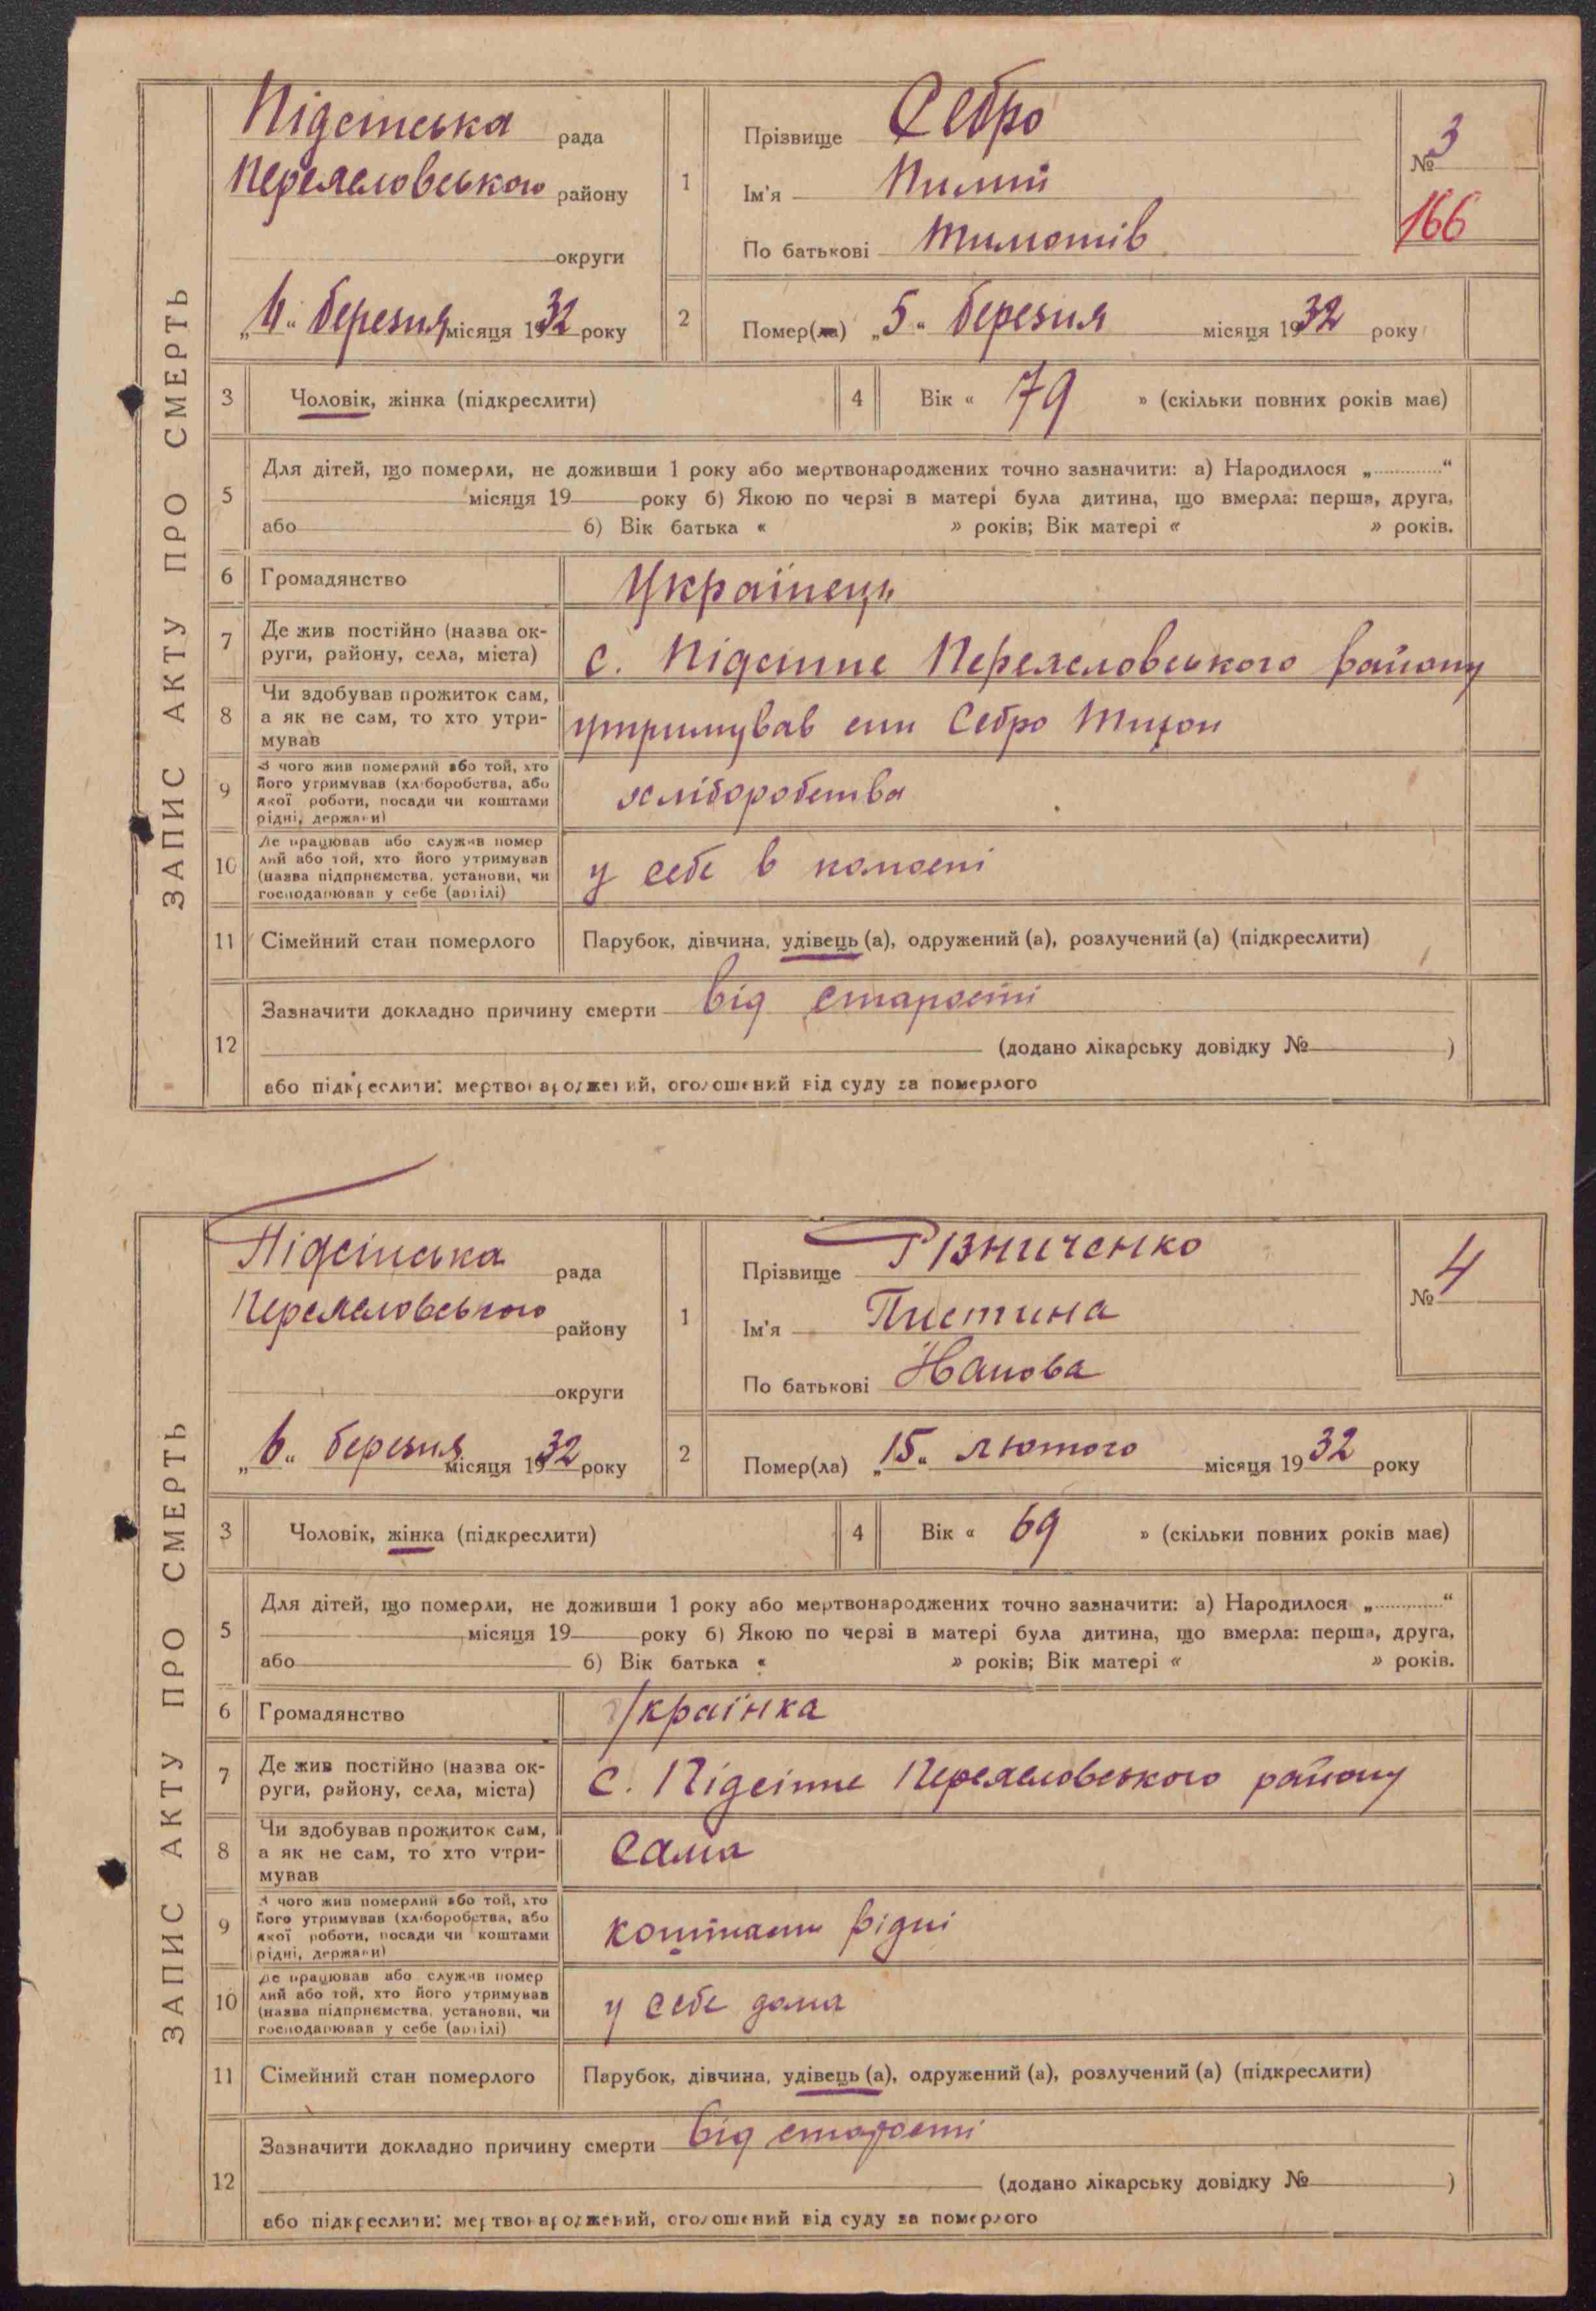 ЗАПИС АКТУ ПРО СМЕРТЬ
Підсінська рада
Переясловського району
округи
„6“ березня місяця 1932 року
1
Прізвище Себро
Ім'я Пилип
По батькові Тимотів
№ 3
166
2
Помер(ла) „5“ березня місяця 1932 року
3 Чоловік, жінка (підкреслити)
4 Вік « 79 » (скільки повних років має)
5 Для дітей, що померли, не доживши 1 року або мертвонароджених точно зазначити: а) Народилося „ “
місяця 19 року б) Якою по черзі в матері була дитина, що вмерла: перша, друга,
або б) Вік батька « » років; Вік матері « » років.
6 Громадянство Українець
7 Де жив постійно (назва ок-
руги, району, села, міста) с. Підсінне Переясловського району
8 Чи здобував прожиток сам,
а як не сам, то хто утри-
мував
утримував син Себро
9 З чого жив померлий або той, хто
його утримував (хліборобства, або
якої роботи, посади чи коштами
рідні, держави)
хліборобства
10 Де працював або служив помер
лий або той, хто його утримував
(назва підприємства, установи, чи
господарював у себе (артілі)
у себе в
11 Сімейний стан померлого Парубок, дівчина, удівець (а), одружений (а), розлучений (а) (підкреслити)
12 Зазначити докладно причину смерти від старости
(додано лікарську довідку № )
або підкреслити: мертвонароджений, оголошений від суду за померлого
ЗАПИС АКТУ ПРО СМЕРТЬ
Підсінська рада
Переясловського району
округи
„6“ березня місяця 1932 року
1
Прізвище Різниченко
Ім'я Пистина
По батькові
№ 4
2
Помер(ла) „15“ лютого місяця 1932 року
3 Чоловік, жінка (підкреслити)
4 Вік « 69 » (скільки повних років має)
5 Для дітей, що померли, не доживши 1 року або мертвонароджених точно зазначити: а) Народилося „ “
місяця 19 року б) Якою по черзі в матері була дитина, що вмерла: перша, друга,
або б) Вік батька « » років; Вік матері « » років.
6 Громадянство Українка
7 Де жив постійно (назва ок-
руги, району, села, міста) с. Підсінне Переясловського району
8 Чи здобував прожиток сам,
а як не сам, то хто утри-
мував
сама
9 З чого жив померлий або той, хто
його утримував (хліборобства, або
якої роботи, посади чи коштами
рідні, держави)
коштами рідні
10 Де працював або служив помер
лий або той, хто його утримував
(назва підприємства, установи, чи
господарював у себе (артілі)
у себе дома
11 Сімейний стан померлого Парубок, дівчина, удівець (а), одружений (а), розлучений (а) (підкреслити)
12 Зазначити докладно причину смерти від старости
(додано лікарську довідку № )
або підкреслити: мертвонароджений, оголошений від суду за померлого